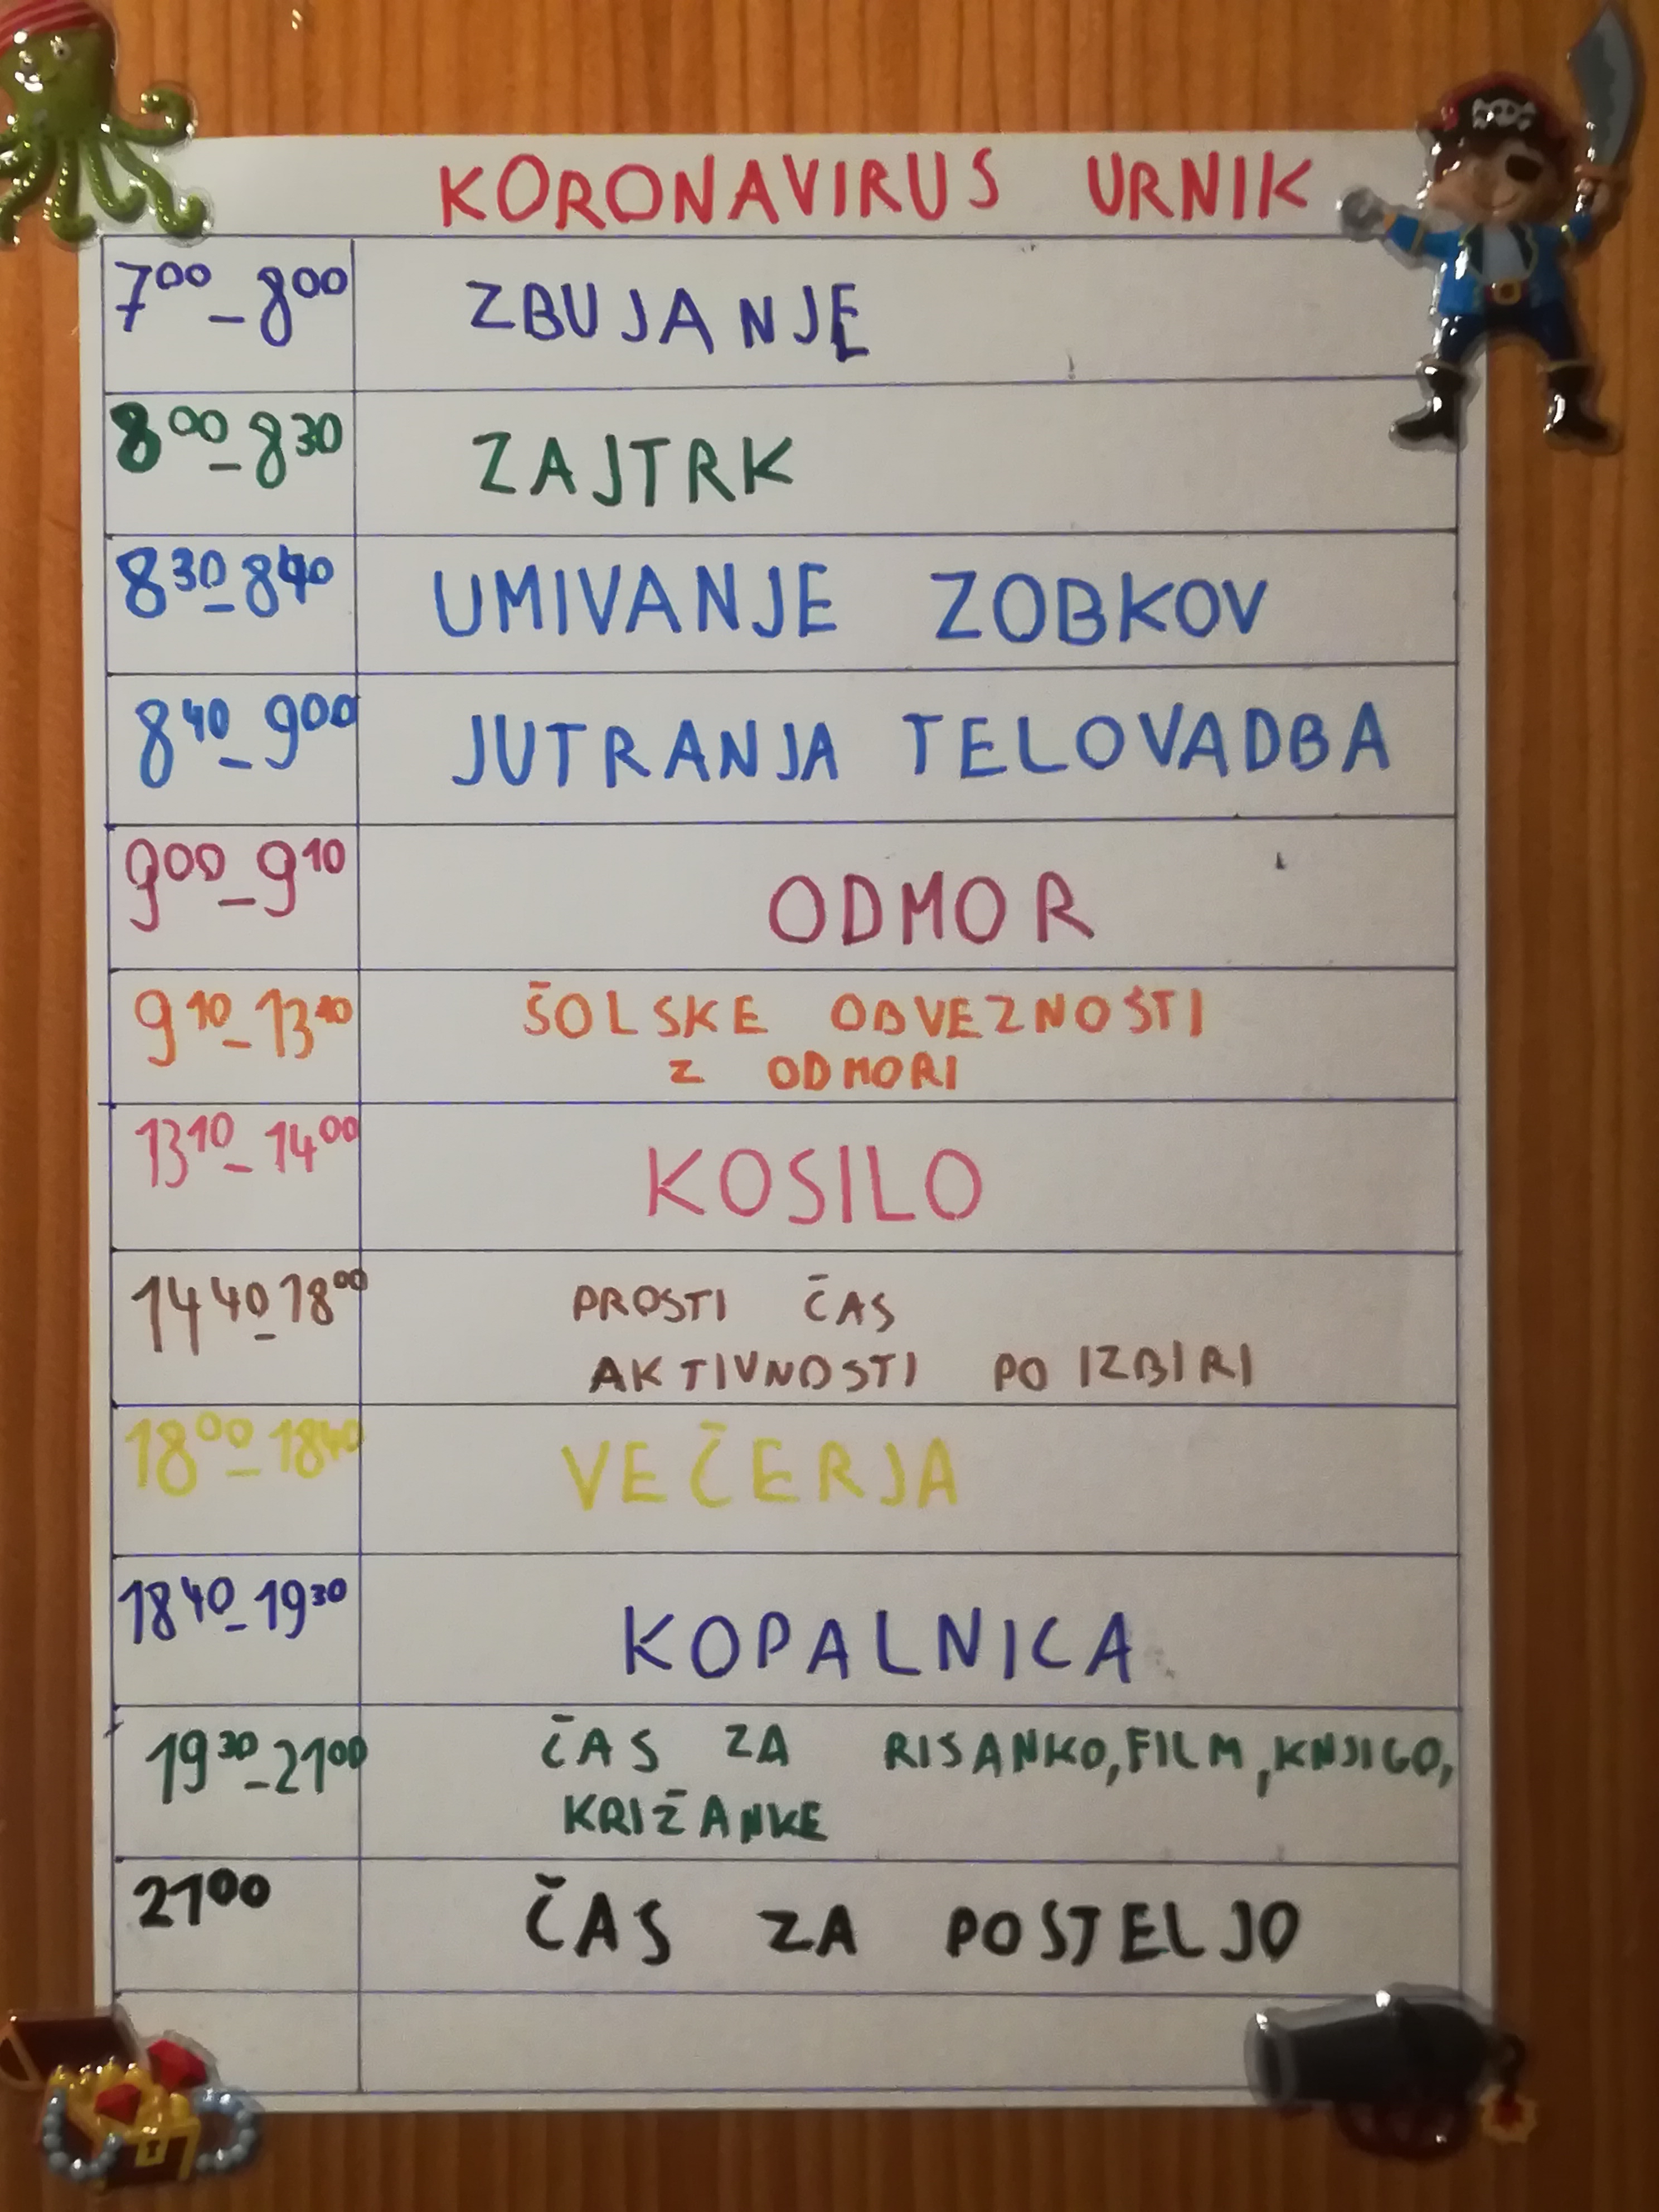 KORONAVIRUS URNIK
7⁰⁰ - 8⁰⁰ ZBUJANJE
8⁰⁰ - 8³⁰ ZAJTRK
8³⁰ - 8⁴⁰ UMIVANJE ZOBKOV
8⁴⁰ - 9⁰⁰ JUTRANJA TELOVADBA
9⁰⁰ - 9¹⁰ ODMOR
9¹⁰ - 13¹⁰ ŠOLSKE OBVEZNOSTI
Z ODMORI
13¹⁰ - 14⁰⁰ KOSILO
14⁴⁰ - 18⁰⁰ PROSTI ČAS
AKTIVNOSTI PO IZBIRI
18⁰⁰ - 18⁴⁰ VEČERJA
18⁴⁰ - 19³⁰ KOPALNICA
19³⁰ - 21⁰⁰ ČAS ZA RISANKO, FILM, KNJIGO,
KRIŽANKE
21⁰⁰ ČAS ZA POSTELJO